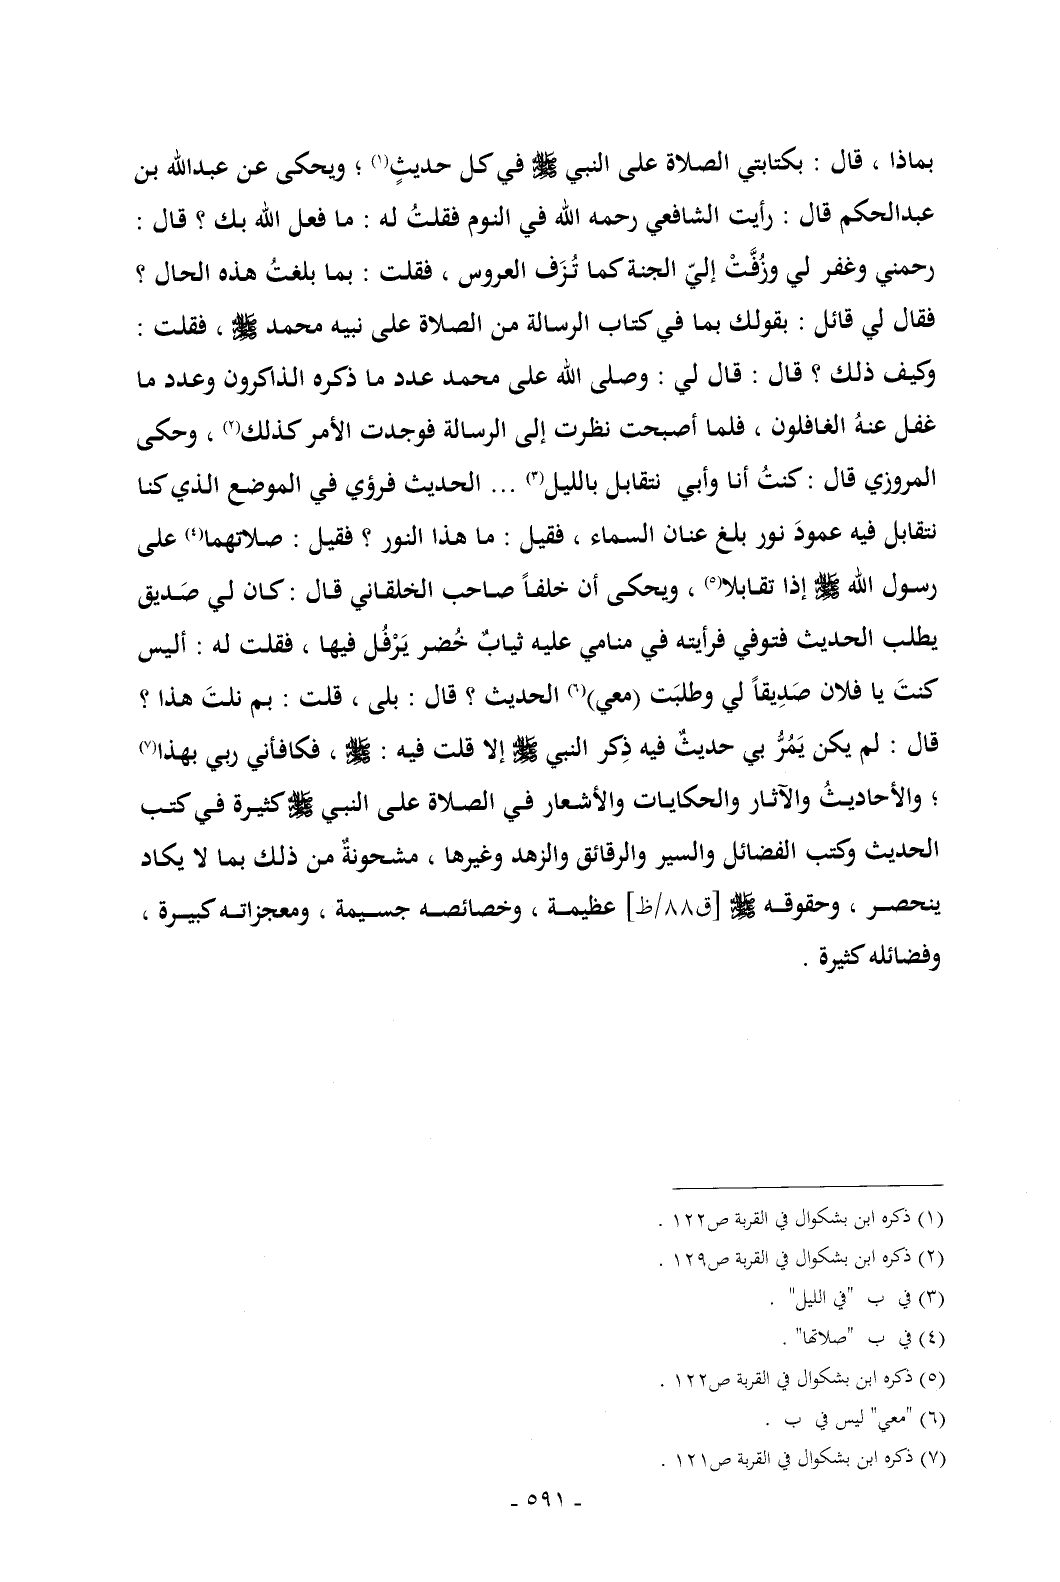 بماذا ، قال : بكتابتي الصلاة على النبي ﷺ في كل حديثٍ(١) ؛ ويحكى عن عبدالله بن
عبدالحكم قال : رأيت الشافعي رحمه الله في النوم فقلتُ له : ما فعل الله بك ؟ قال :
رحمني وغفر لي وزُفَّتْ إليّ الجنة كما تُزَف العروس ، فقلت : بما بلغتُ هذه الحال ؟
فقال لي قائل : بقولك بما في كتاب الرسالة من الصلاة على نبيه محمد ﷺ ، فقلت :
وكيف ذلك ؟ قال : قال لي : وصلى الله على محمد عدد ما ذكره الذاكرون وعدد ما
غفل عنهُ الغافلون ، فلما أصبحت نظرت إلى الرسالة فوجدت الأمر كذلك(٢) ، وحكى
المروزي قال : كنتُ أنا وأبي نتقابل بالليل(٣) ... الحديث فرؤي في الموضع الذي كنا
نتقابل فيه عمودَ نور بلغ عنان السماء ، فقيل : ما هذا النور ؟ فقيل : صلاتهما(٤) على
رسول الله ﷺ إذا تقابلا(٥) ، ويحكى أن خلفاً صاحب الخلقاني قال : كان لي صَديق
يطلب الحديث فتوفي فرأيته في منامي عليه ثيابٌ خُضر يَرْفُل فيها ، فقلت له : أليس
كنتَ يا فلان صَدِيقاً لي وطلبَت (معي)(٦) الحديث ؟ قال : بلى ، قلت : بم نلتَ هذا ؟
قال : لم يكن يَمُرُّ بي حديثٌ فيه ذِكر النبي ﷺ إلا قلت فيه : ﷺ ، فكافأني ربي بهذا(٧)
؛ والأحاديثُ والآثار والحكايات والأشعار في الصلاة على النبي ﷺ كثيرة في كتب
الحديث وكتب الفضائل والسير والرقائق والزهد وغيرها ، مشحونةٌ من ذلك بما لا يكاد
ينحصر ، وحقوقه ﷺ [ق٨٨/ظ] عظيمة ، وخصائصه جسيمة ، ومعجزاته كبيرة ،
وفضائله كثيرة .
(١) ذكره ابن بشكوال في القربة ص١٢٢ .
(٢) ذكره ابن بشكوال في القربة ص١٢٩ .
(٣) في ب "في الليل" .
(٤) في ب "صلاتها" .
(٥) ذكره ابن بشكوال في القربة ص١٢٢ .
(٦) "معي" ليس في ب .
(٧) ذكره ابن بشكوال في القربة ص١٢١ .
- ٥٩١ -